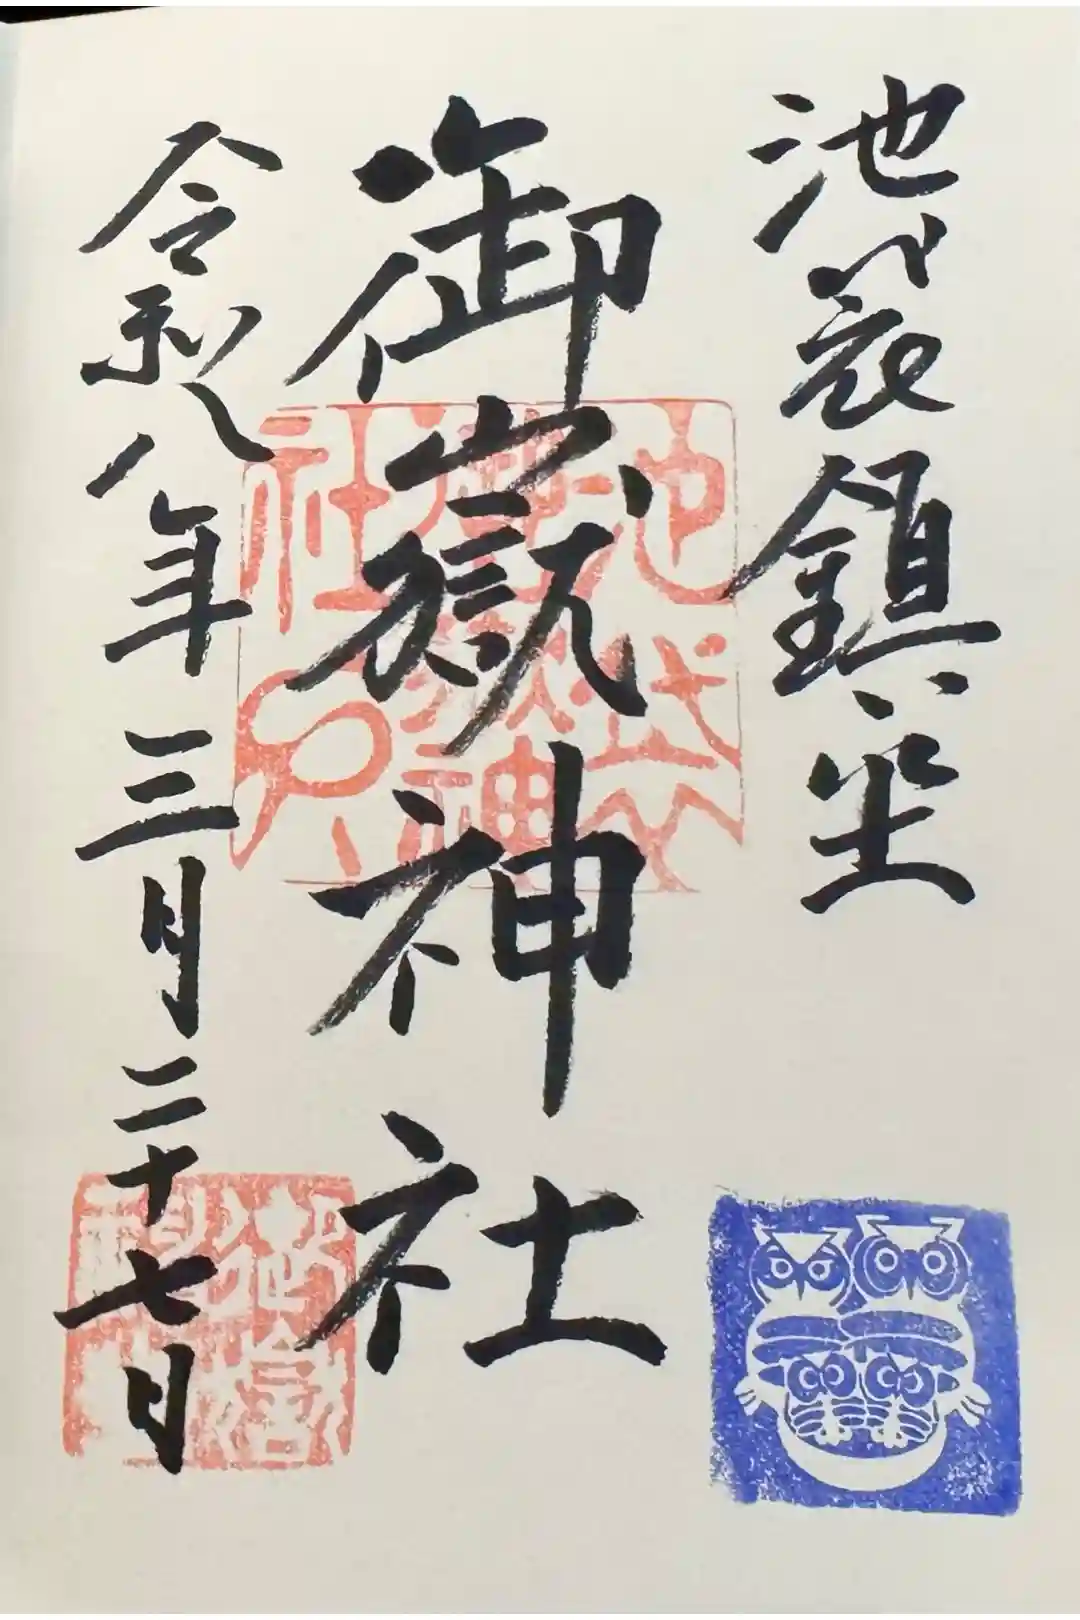 池袋鎮坐
御嶽神社
令和八年三月二十七日
池袋御嶽神社